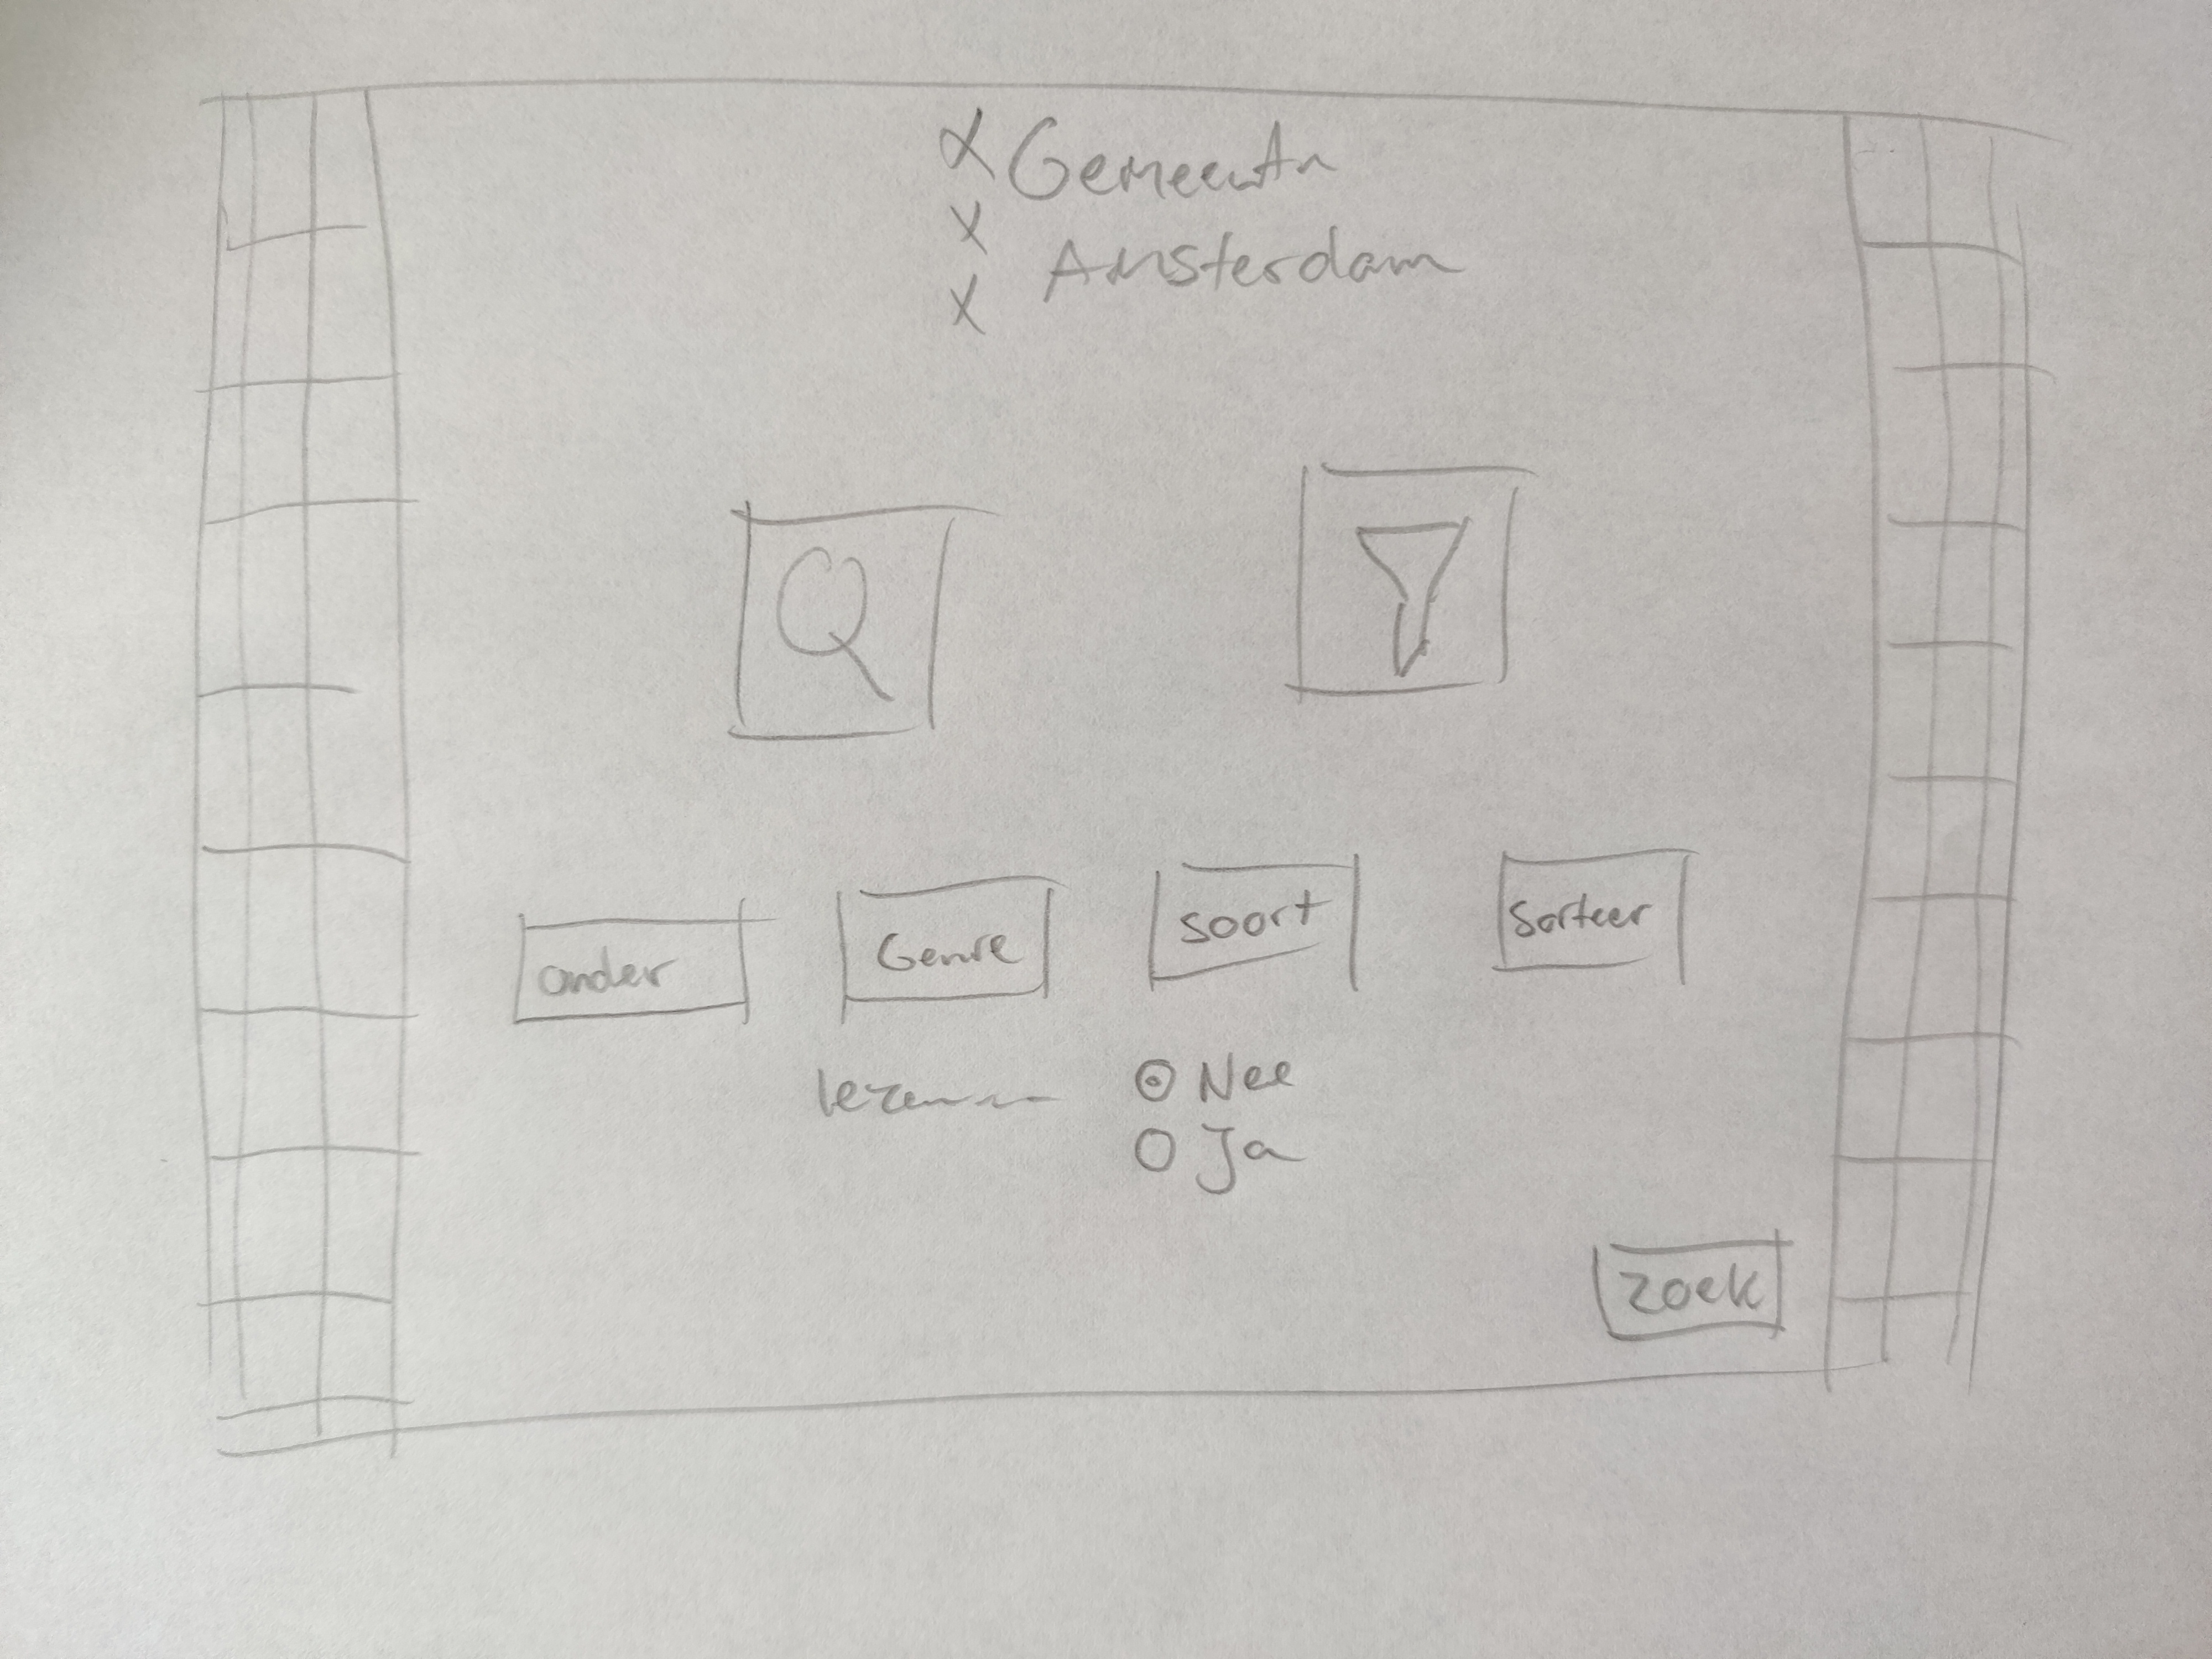 X Gemeente
X Amsterdam
X
onder Genre soort Sorteer
lezen Nee
Ja
zoek